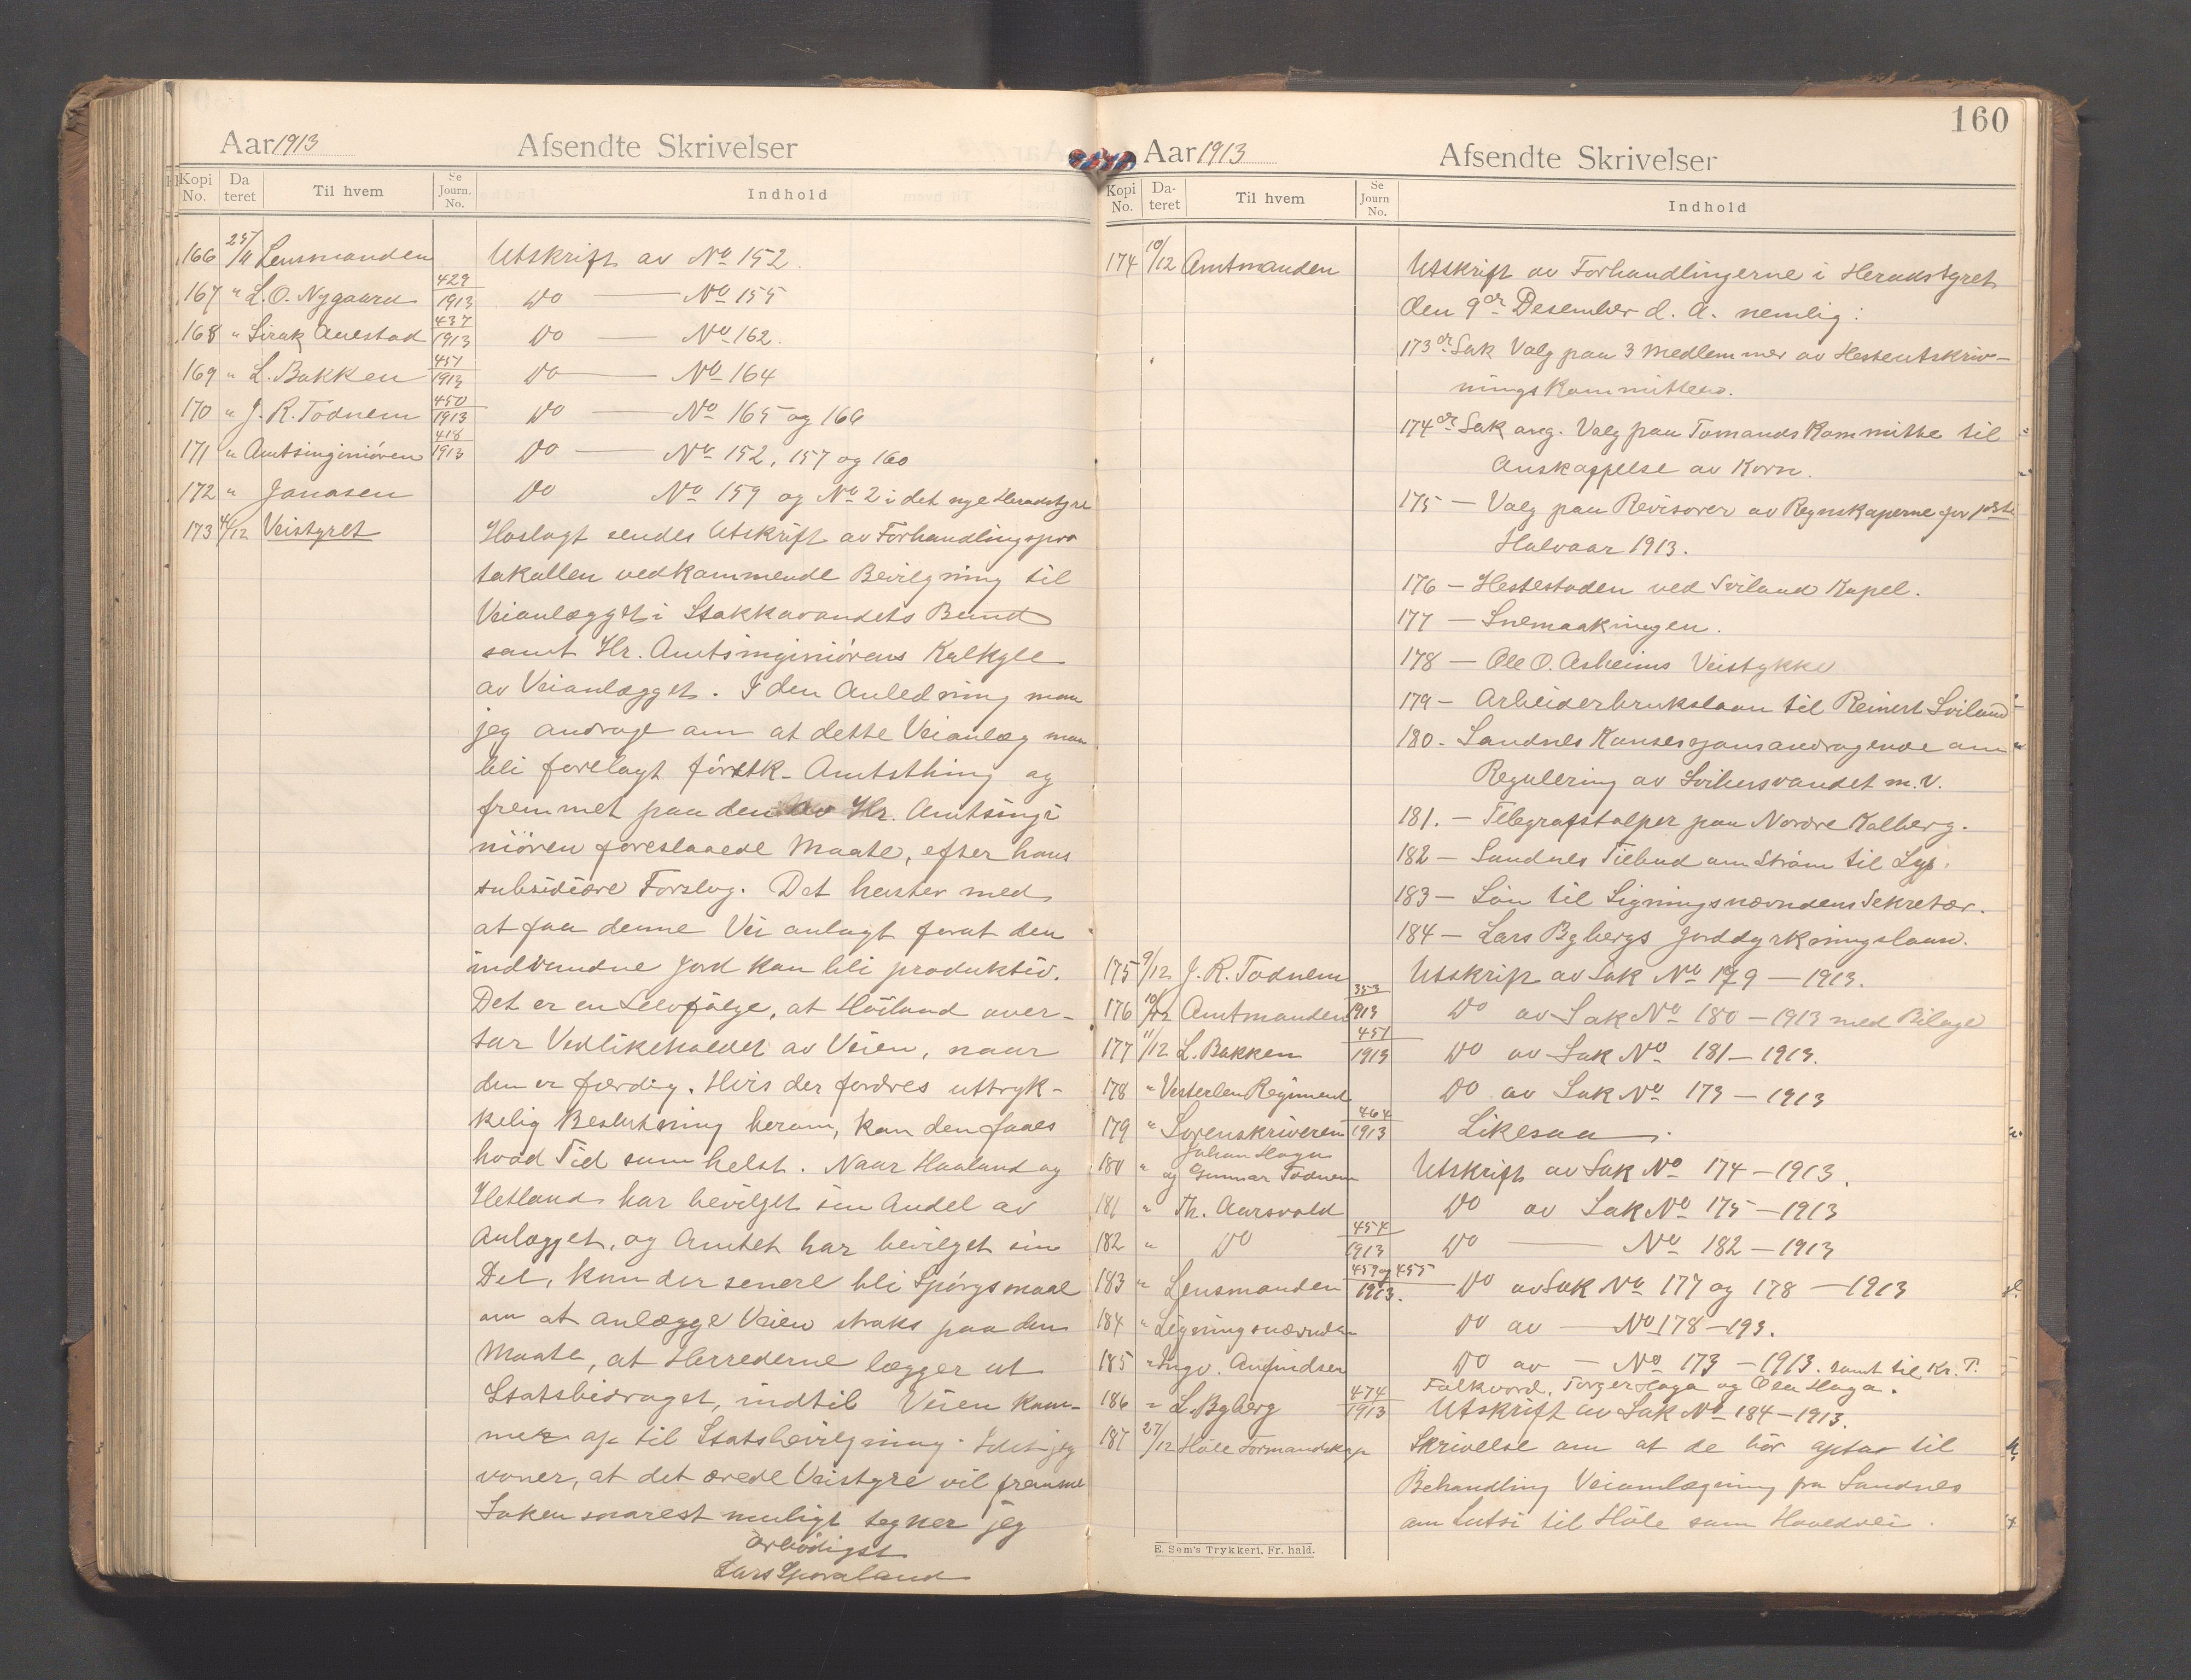 Aar 1913 Afsendte Skrivelser
Kopi No. Da teret Til hvem Se Journ. No. Indhold
166 25/11 Lensmanden Utskrift av No 152.
167 " L. O. Nygaard 429/1913 Do — No 155
168 " Sirak Auestad 437/1913 Do — No 162.
169 " L. Bakken 451/1913 Do — No 164
170 " J. R. Todnem 450/1913 Do — No 165 og 166
171 " Amtsinginiören 418/1913 Do — No 152, 157 og 160
172 " Jonasen Do No 159 og No 2 i det nye Heradstyre
173 4/12 Veistyret Hoslagt sendes Utskrift av Forhandlingspro
tokollen vedkommende Bevilgning til
Veianlægget i Stokkavandets Bund
samt Hr. Amtsinginiörens Kalkyle
av Veianlægget. I den Anledning maa
jeg andrage om at dette Veianlæg maa
bli forelagt förstk. Amtsthing og
fremmet paa den av Hr. Amtsingi
niören foreslaaede Maate, efter hans
subsidiære Forslag. Det haster med
at faa denne Vei anlagt forat den
indvundne Jord kan bli produktiv.
Det er en Selvfölge, at Höiland over-
tar Vedlikeholdet av Veien, naar
den er færdig. Hvis der fordres uttryk-
kelig Beslutning herom, kan den faaes
hvad Tid som helst. Naar Haaland og
Hetland har bevilget sin Andel av
Anlægget, og Amtet har bevilget sin
Del, kan der senere bli Spörgsmaal
om at anlægge Veien straks paa den
Maate, at Herrederne lægger ut
Statsbidraget, indtil Veien kom-
mer op til Statsbevilgning. Idet jeg
vaner, at det ærede Veistyre vil fremme
Saken snarest muligt tegner jeg
ærbödigst
Lars
160
Aar 1913 Afsendte Skrivelser
Kopi No. Da- teret Til hvem Se Journ No. Indhold
174 10/12 Amtmanden Utskrift av Forhandlingerne i Heradstyret
den 9de Desember d. A. nemlig:
173de Sak Valg paa 3 Medlemmer av Hesteutskriv-
ningskommitteen.
174de Sak ang. Valg paa Tomands Kommitte til
Anskaffelse av Korn.
175 — Valg paa Revisorer av Regnskaperne for 1ste
Halvaar 1913.
176 — Hestestaden ved Sviland Kapel.
177 — Snemaakningen.
178 — Ole O. Asheims Veistykke
179 — Arbeiderbrukslaan til Reinert Sviland
180. — Sandnes Konsesjonsandragende om
Regulering av Svihusvandet m.v.
181. — Telegrafstolper paa Nordre Kalberg.
182 — Sandnes Tilbud om Ström til Lys.
183 — Lön til Ligningsnævndens Sekretær.
184 — Lars Bybergs Jorddyrkningslaan.
175 9/12 J. R. Todnem Utskrift av Sak No 179 — 1913.
176 10/12 Amtmanden 353/1913 Do av Sak No 180 — 1913 med Bilage
177 11/12 L. Bakken 451/1913 Do av Sak No 181 — 1913.
178 " Vesterlen Regiment Do av Sak No 173 — 1913
179 " Sorenskriveren 464/1913 Likesaa.
180 " Johan Haga
og Gunnar Todnem Utskrift av Sak No 174 — 1913.
181 " Th. Aarsvold Do av Sak No 175 — 1913
182 " Do 454/1913 Do — No 182 — 1913
183 " Lensmanden 459 og 455/1913. Do av Sak No 177 og 178 — 1913
184 " Ligningsnævnden Do av — No 178 — 193.
185 " Ingv. Aufindsen Do av — No 173 — 1913. samt til Kr. T.
Falkvord, Torger Haga og Ola Haga.
186 " L. Byberg 474/1913 Utskrift av Sak No 184 — 1913.
187 27/12 Höle Formandskap Skrivelse om at de bör opta til
Behandling Veiomlægning fra Sandnes
om Lutsi til Höle som Hovedvei.
E. Sem's Trykkeri, Fr. hald.